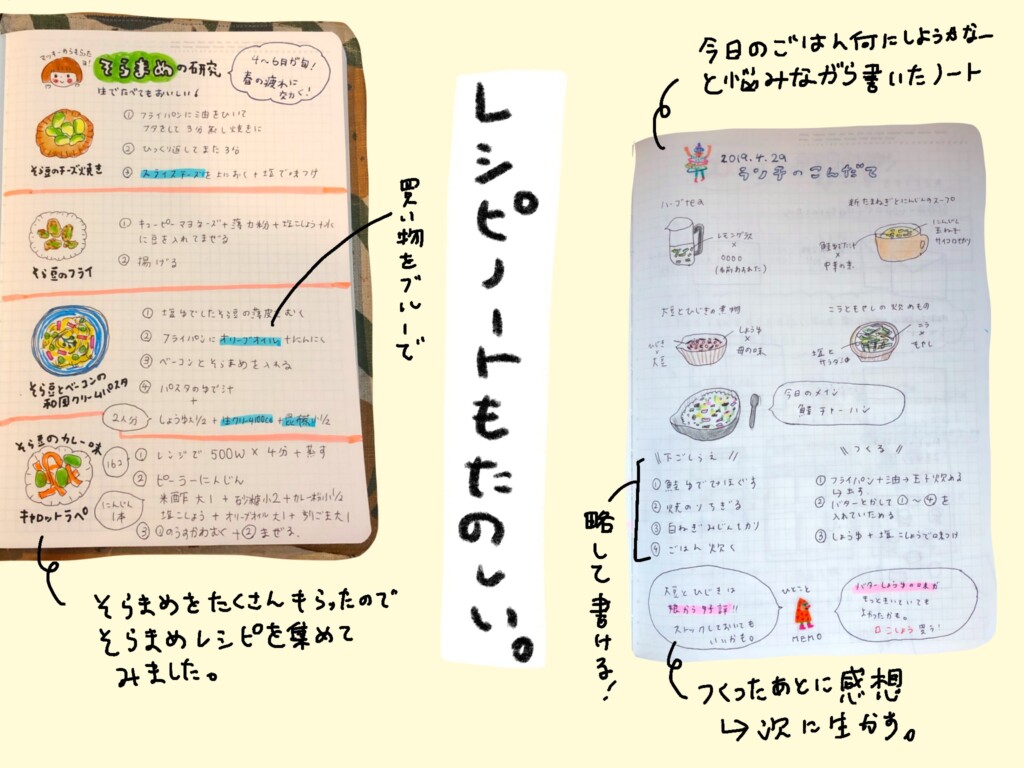 レシピノートもたのしい。
マッキーからもらったよ！
そらまめの研究
ゆでたべてもおいしい
4〜6月が旬！
春の疲れに
効く！
そら豆のチーズ焼き
① フライパンに油をひいて
フタをして3分蒸し焼きに
② ひっくり返してまた3分
③ スライスチーズを上におく+塩で味つけ
そら豆のフライ
① キューピーマヨネーズ+薄力粉+塩こしょう+水
に豆を入れてまぜる
② 揚げる
そら豆とベーコンの
和風クリームパスタ
① 塩ゆでしたそら豆の薄皮をむく
② フライパンにオリーブオイル+にんにく
③ ベーコンとそらまめを入れる
④ パスタのゆで汁
+
2人分
しょうゆ大1/2+生クリーム100cc+昆布小1/2
そら豆のカレー味
キャロットラペ
162
① レンジで500W×4分+蒸す
② ピーラーにんじん
にんじん
1本
米酢大1+砂糖小2+カレー粉小1/2
塩こしょう+オリーブオイル大1
③ ①のうすかわむく+②まぜる。
買い物をブルーで
そらまめをたくさんもらったので
そらまめレシピを集めて
みました。
今日のごはん何にしようかなー
と悩みながら書いたノート
2019.4.29
ラン子のこんだて
ハーブ
レモングラス
×
○○○○
(名前わすれた)
新たまねぎとにんじんのスープ
にんじん
玉ねぎ
サイコロ切り
鮭ゆでた汁
×
中華の素
大豆とひじきの煮物
ひじき
×
大豆
しょうゆ
×
母の味
ニラともやしの炒めもの
ニラ
×
もやし
塩と
サラダ油
今日のメイン
鮭チャーハン
下ごしらえ
① 鮭ゆでてほぐす
② 焼のりちぎる
③ 白ねぎみじん切り
④ ごはん炊く
つくる
① フライパン+油→玉子炒める
↳出す。
② バターとかして①〜④を
入れていためる
③ しょうゆ+塩こしょうで味つけ
略して書ける！
大豆とひじきは
ストックしておいても
いいかも。
ひとこと
MEMO
バターしょうゆの味が
もっときいていても
よかったかも。
つくったあとに感想
↳次に生かす。